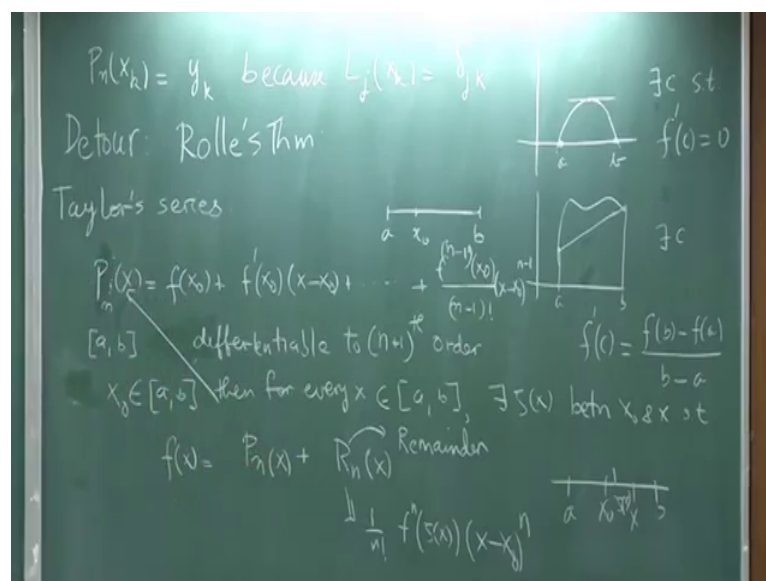 Pₙ(xₖ) = yₖ because Lⱼ(xₖ) = δⱼₖ
∃c s.t.
f'(c) = 0
a b
Detour: Rolle's Thm
Taylor's series
a x₀ b
∃c
a b
Pₙ(x) = f(x₀) + f'(x₀)(x-x₀) + ..... + f⁽ⁿ⁻¹⁾(x₀)/(n-1)! (x-x₀)ⁿ⁻¹
f'(c) = f(b)-f(a)/b-a
[a,b] differentiable to (n+1)ᵗʰ order
x₀∈[a,b] then for every x ∈ [a,b], ∃ ζ(x) betn x₀ & x s.t
f(x) = Pₙ(x) + Rₙ(x) Remainder
⇓ 1/n! fⁿ(ζ(x))(x-x₀)ⁿ
a x₀ ζ(x) x b